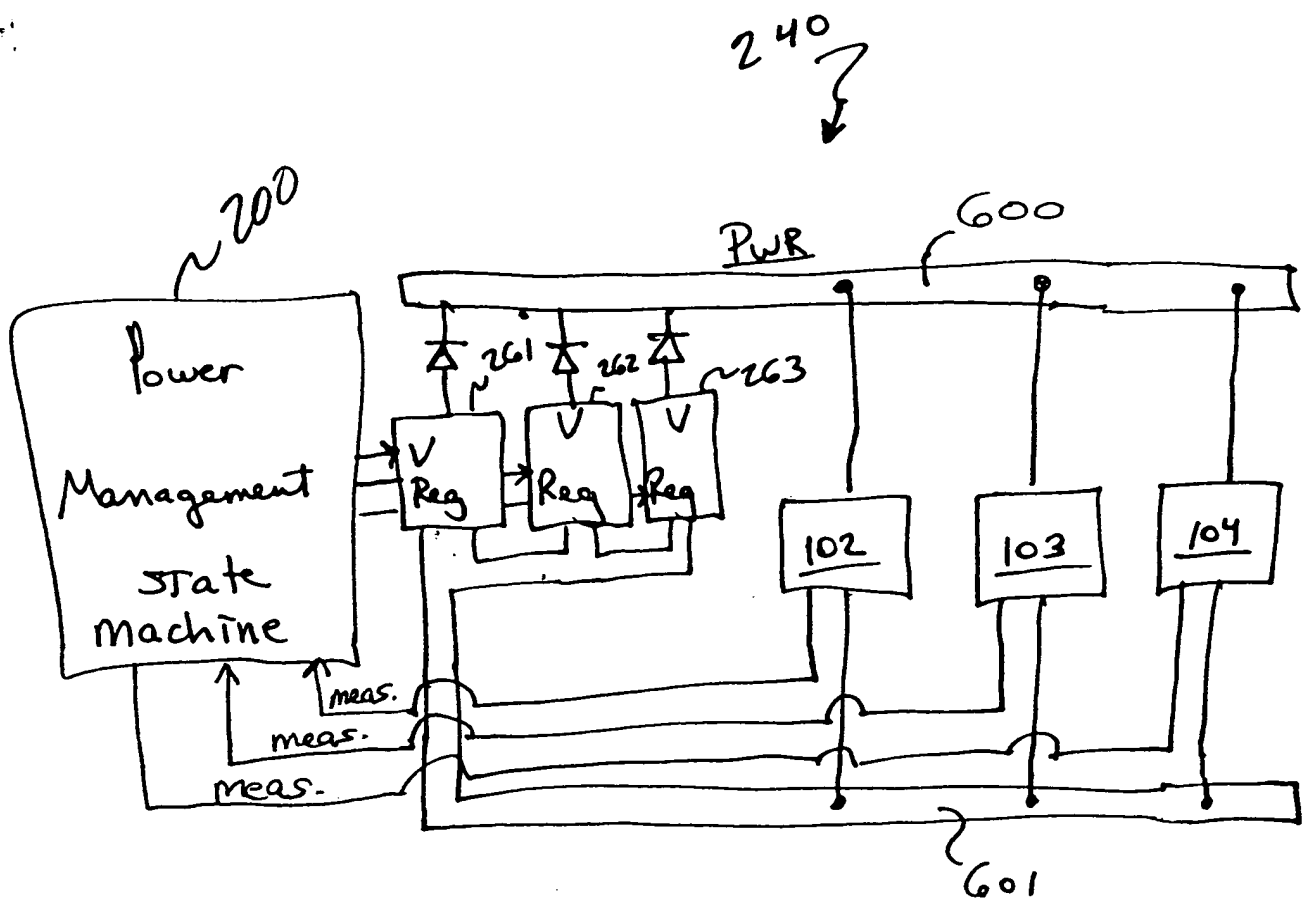 240
200
600
PWR
Power
Management
State
machine
261
262
263
V
Reg
V
Reg
V
Reg
102
103
104
meas.
meas.
meas.
601